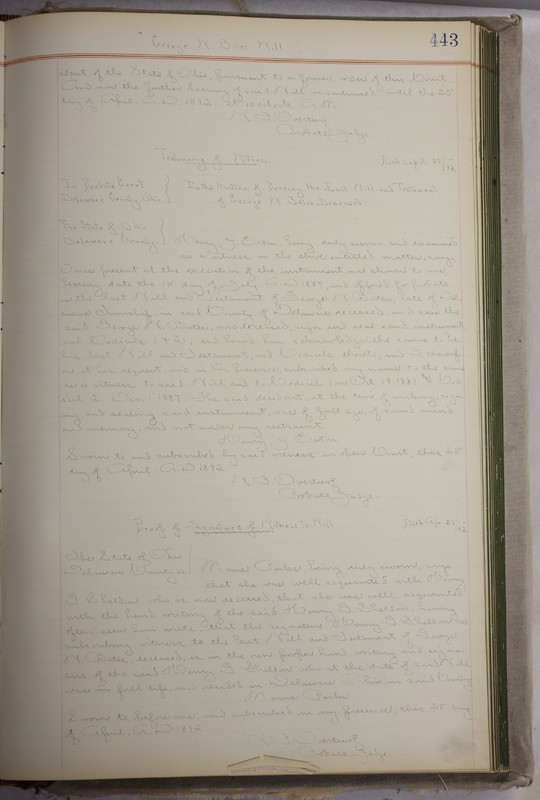 443
George W. Bates Will
dent of the State of Ohio, pursuant to a former order of this Court.
And now the further hearing of said Will is continued until the 25
day of April A.D. 1892 at 10 o'clock A.M.
Probate Judge
Testimony of Witness Filed April 25/92
In Probate Court
Delaware County, Ohio
In the Matter of Proving the Last Will and Testament
of George W. Bates, Deceased
The State of Ohio
Delaware County
Henry being duly sworn and examined
as a witness in the above entitled matter, says,
I was present at the execution of the instrument now shown to me
bearing date the 14 day of July A.D. 1887, and offered for probate
as the last Will and Testament of George W. Bates, late of Dela-
ware Township, in said County of Delaware deceased, and saw the
said George W. Bates, now deceased, sign and seal said instrument
and Codicils 1 & 2, and heard him acknowledge the same to be
his last Will and Testament, and Codicils thereto, and I there
at his request, and in his presence, subscribed my name to the same
as a witness to said Will and to Codicil 1 on Oct 19, 1887 & Cod-
icil 2, Dec. 1, 1887. The said decedent, at the time of making, sign-
ing and sealing said instrument, was of full age, of sound mind
and memory, and not under any restraint
Henry
Sworn to and subscribed by said witness in open Court, this 25
day of April A.D. 1892.
Probate Judge
Proof of Signature of Witness to Will Filed Apr 25
The State of Ohio
Delaware County, ss
being duly sworn, says
that she was well acquainted with Henry
J. Sheldon who is now deceased, that she was well acquainted
with the hand writing of the said Henry J. Sheldon, having
often seen him write, that the signature Henry J. Sheldon as
subscribing witness to the last Will and Testament of George
W. Bates, deceased, is in the own proper hand writing and signa-
ture of the said Henry J. Sheldon who at the date of said Will
was in full life, and resided in Delaware Ohio in said County
Sworn to before me, and subscribed in my presence, this 25 day
of April, A.D. 1892
Probate Judge